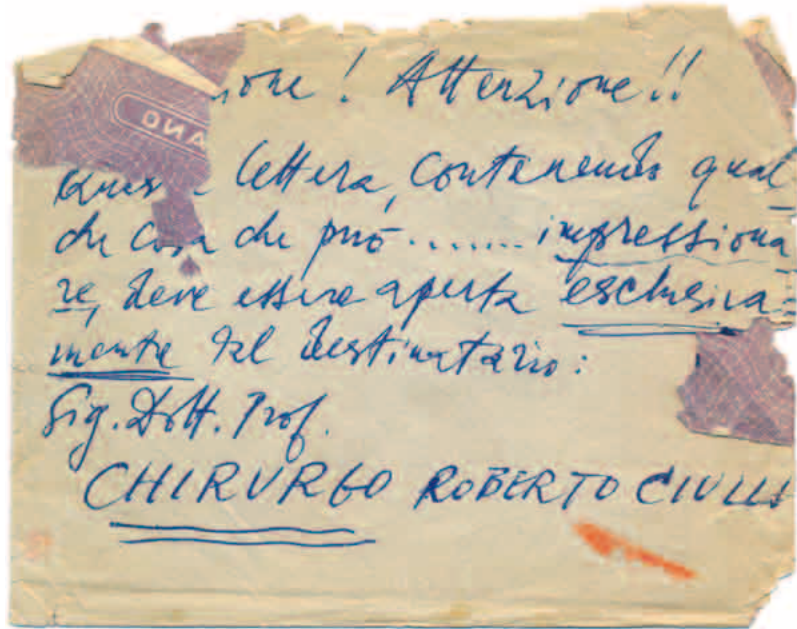 ione! Attenzione!!
ONA
lettera, contenendo qual-
che cosa che può....... impressiona
re, deve essere aperta esclusiva-
mente dal destinatario:
Sig. Dott. Prof.
CHIRURGO ROBERTO